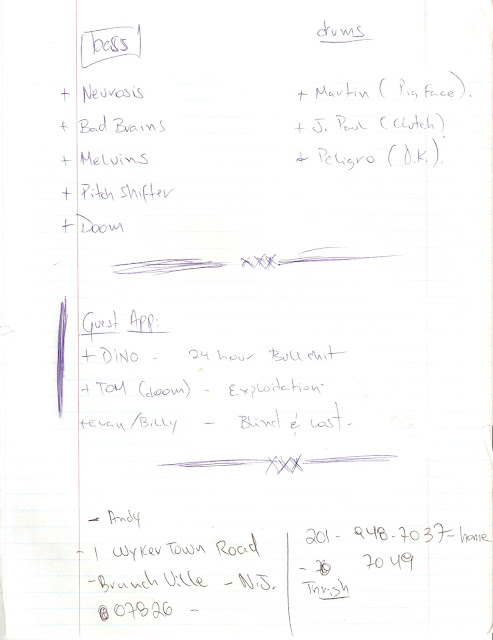 bass
+ Neurosis
+ Bad Brains
+ Melvins
+ Pitch Shifter
+ Doom
drums
+ Martin (Pig Face).
+ J. Paul (Clutch)
+ Peligro (D.K.).
xxx
Guest App:
+ DINO - 24 hour Bullshit
+ TOM (doom) - Exploitation.
+ Evan/Billy - Blind & Lost.
xxx
- Andy
- 1 Wyker Town Road
- Branch Ville - N.J.
07826 -
201 - 948-7037 = home
- 7049